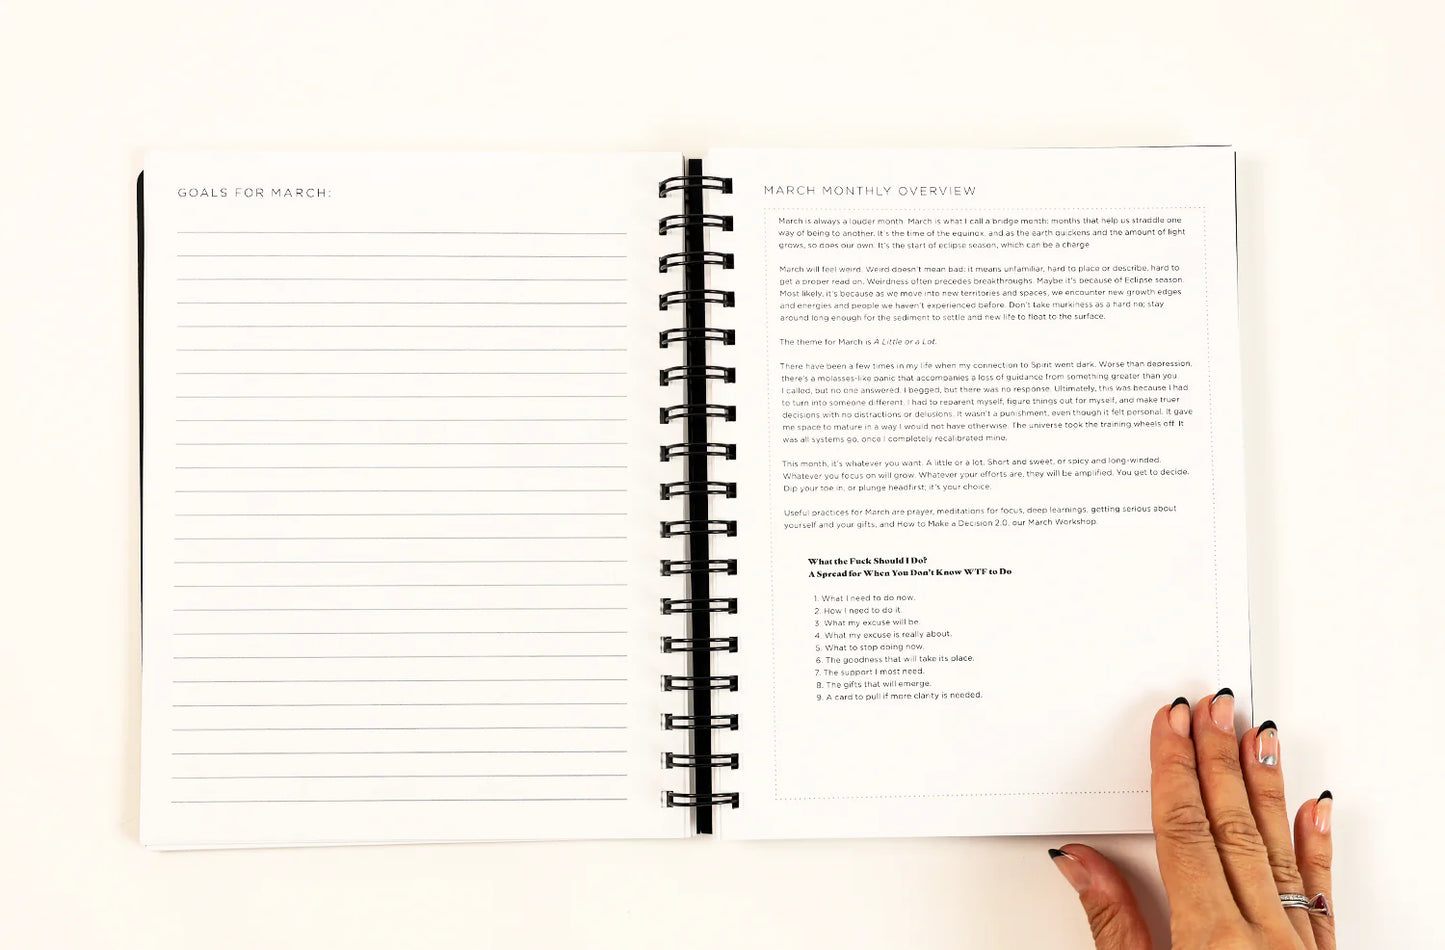 GOALS FOR MARCH:
MARCH MONTHLY OVERVIEW
March is always a louder month. March is what I call a bridge month: months that help us straddle one
way of being to another. It's the time of the equinox, and as the earth quickens and the amount of light
grows, so does our own. It's the start of eclipse season, which can be a charge
March will feel weird. Weird doesn't mean bad; it means unfamiliar, hard to place or describe, hard to
get a proper read on. Weirdness often precedes breakthroughs. Maybe it's because of Eclipse season.
Most likely, it's because as we move into new territories and spaces, we encounter new growth edges
and energies and people we haven't experienced before. Don't take murkiness as a hard no; stay
around long enough for the sediment to settle and new life to float to the surface.
The theme for March is A Little or a Lot.
There have been a few times in my life when my connection to Spirit went dark. Worse than depression,
there's a molasses-like panic that accompanies a loss of guidance from something greater than you.
I called, but no one answered. I begged, but there was no response. Ultimately, this was because I had
to turn into someone different. I had to reparent myself, figure things out for myself, and make truer
decisions with no distractions or delusions. It wasn't a punishment, even though it felt personal. It gave
me space to mature in a way I would not have otherwise. The universe took the training wheels off. It
was all systems go, once I completely recalibrated mine.
This month, it's whatever you want. A little or a lot. Short and sweet, or spicy and long-winded.
Whatever you focus on will grow. Whatever your efforts are, they will be amplified. You get to decide.
Dip your toe in, or plunge headfirst; it's your choice.
Useful practices for March are prayer, meditations for focus, deep learnings, getting serious about
yourself and your gifts, and How to Make a Decision 2.0, our March Workshop.
What the Fuck Should I Do?
A Spread for When You Don't Know WTF to Do
1. What I need to do now.
2. How I need to do it.
3. What my excuse will be.
4. What my excuse is really about.
5. What to stop doing now.
6. The goodness that will take its place.
7. The support I most need.
8. The gifts that will emerge.
9. A card to pull if more clarity is needed.